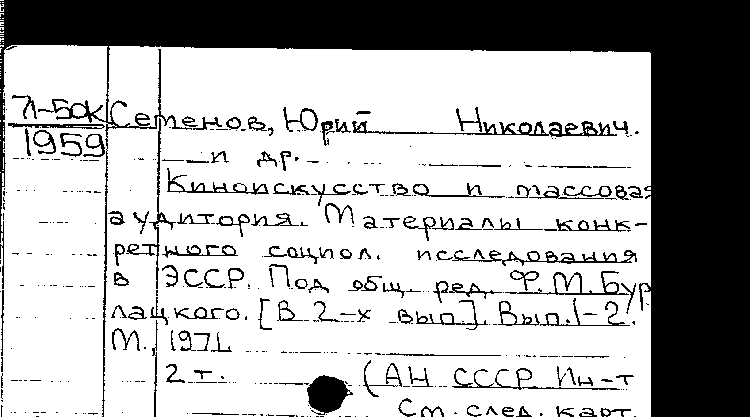 71-50к Семенов, Юрий Николаевич.
1959
и др.
Киноискусство и массовая
аудитория. Материалы конк-
ретного социол. исследования
в ЭССР. Под общ. ред. Ф.М.Бур
лацкого. [В 2-х вып]. Вып.1-2.
М., 1971
2 т. (АН СССР Ин-т
См. след. карт.